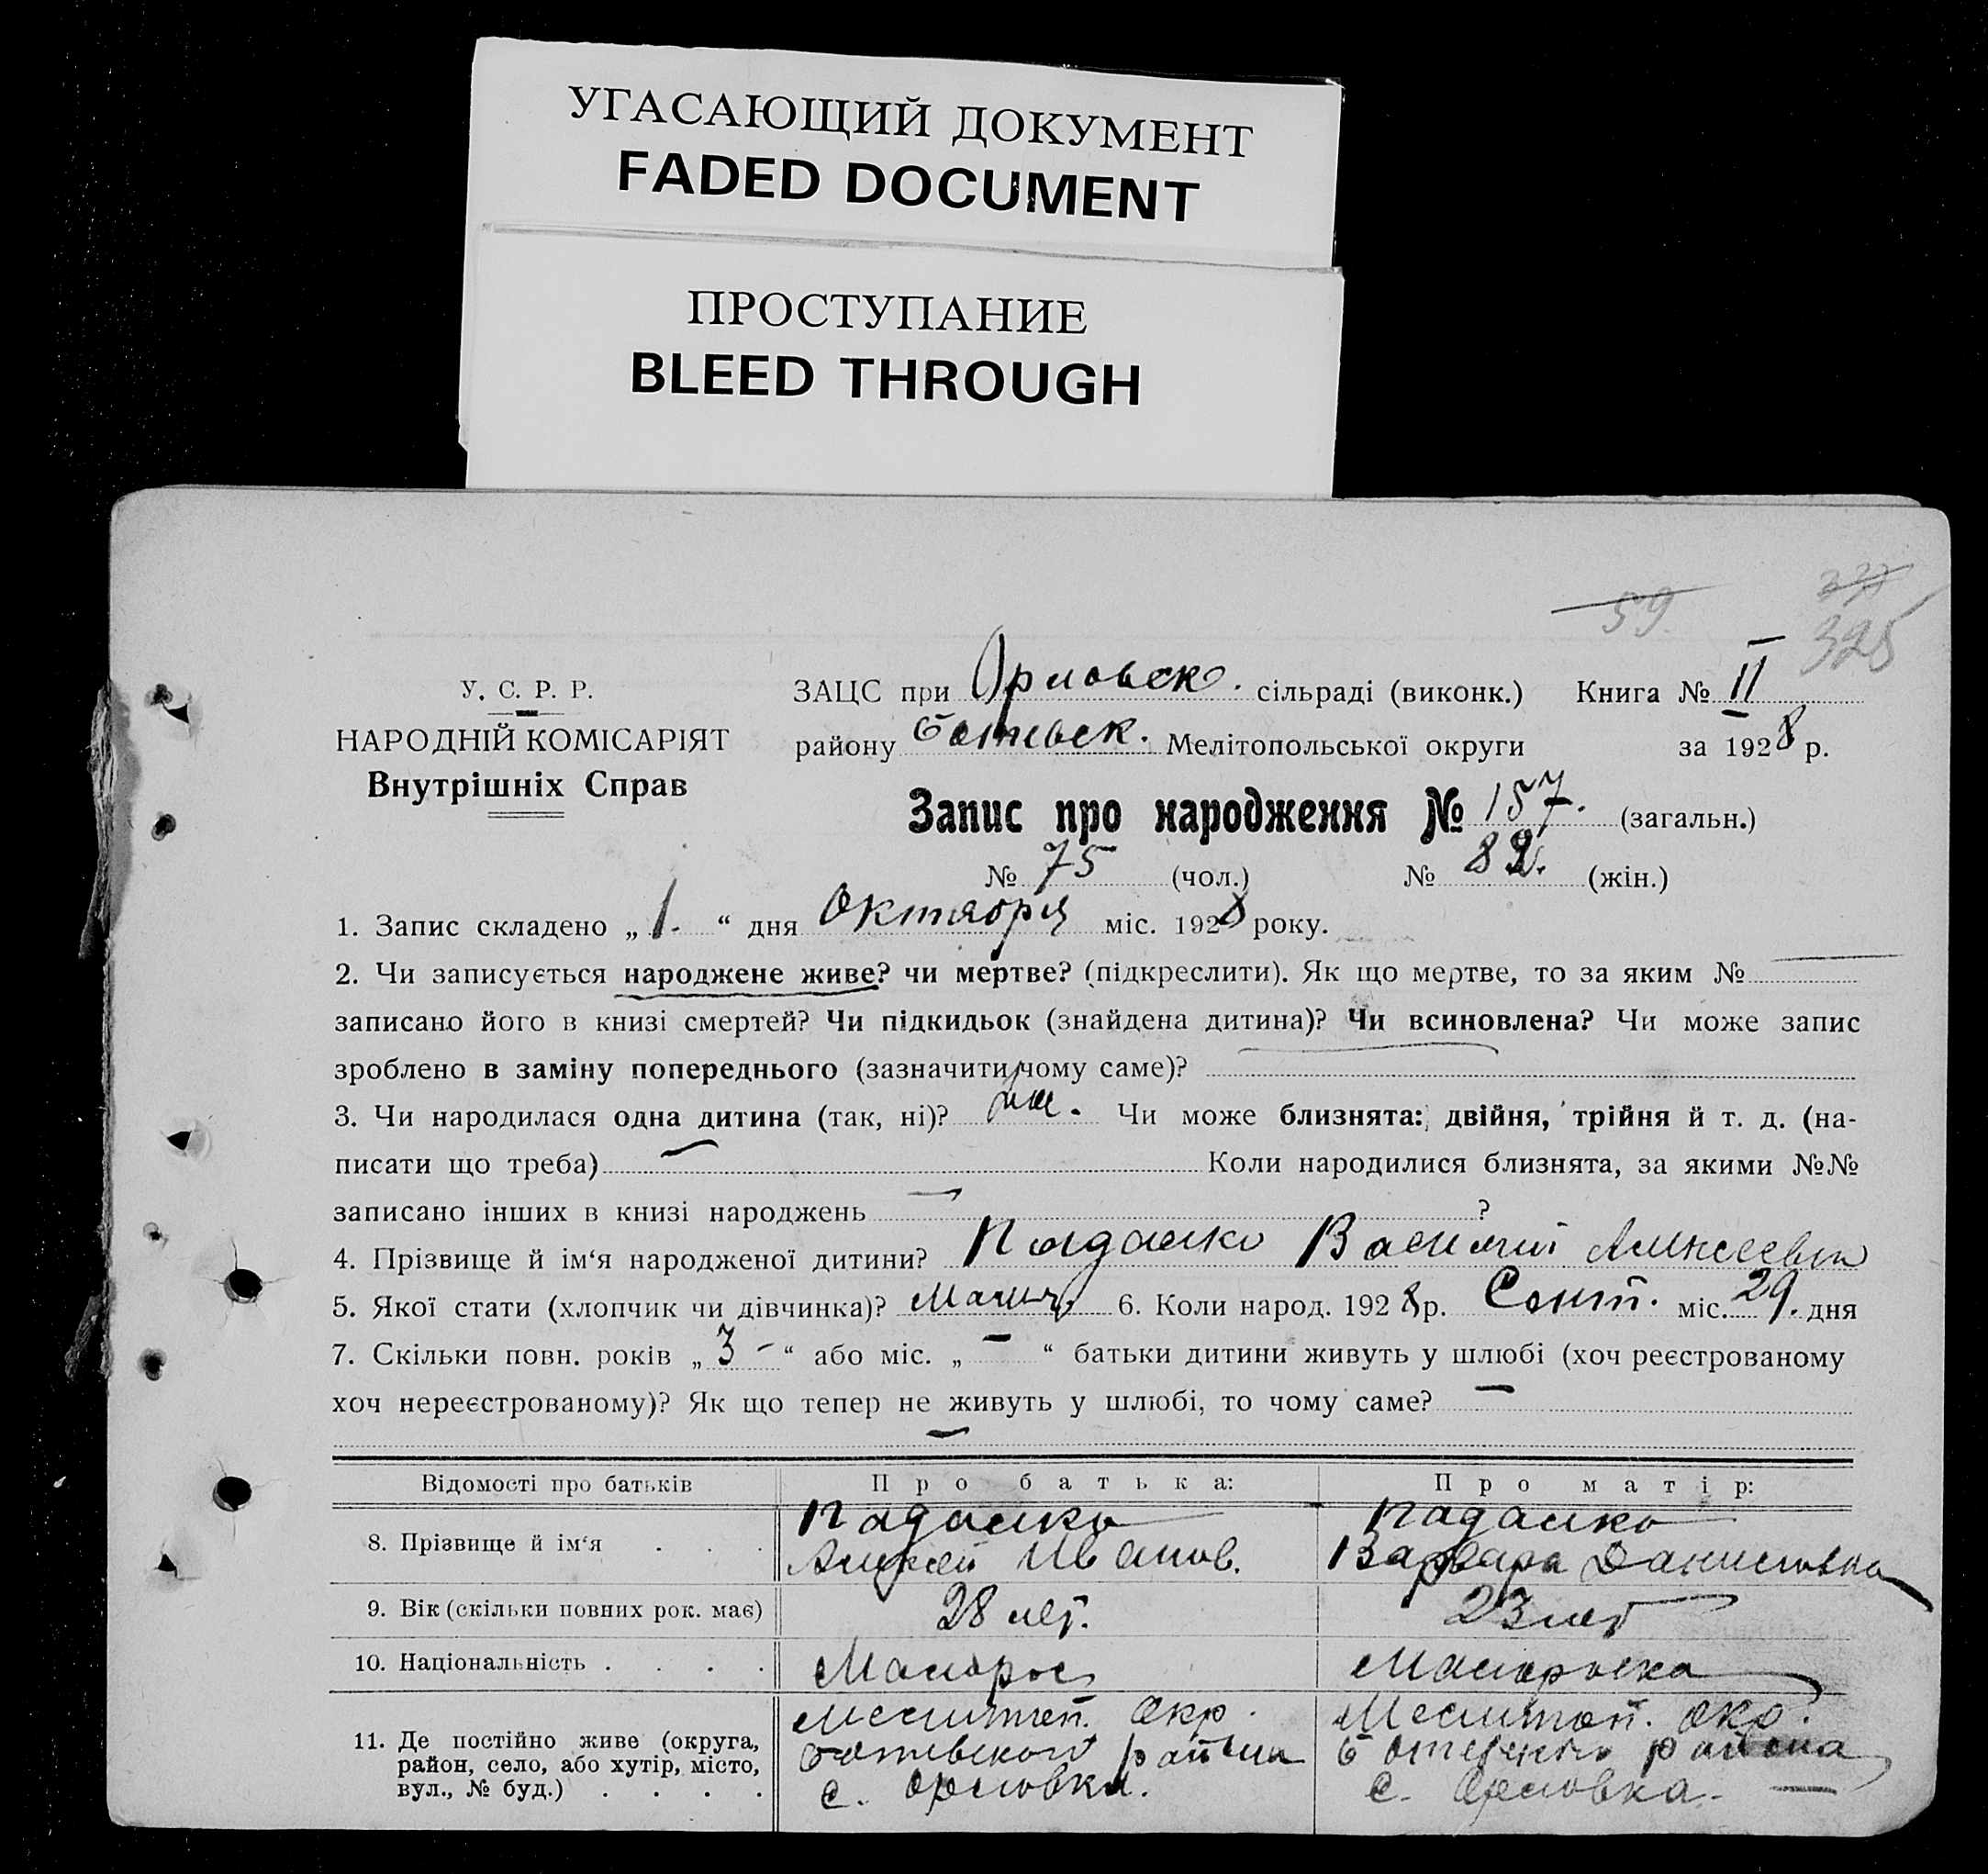 УГАСАЮЩИЙ ДОКУМЕНТ
FADED DOCUMENT
ПРОСТУПАНИЕ
BLEED THROUGH
59
325
У. С. Р. Р.
НАРОДНІЙ КОМІСАРІЯТ
Внутрішніх Справ
ЗАЦС при Орловск. сільраді (виконк.) Книга № II
району Ботевск. Мелітопольської округи за 1928 р.
Запис про народження № 157. (загальн.)
№ 75 (чол.) № 82. (жін.)
1. Запис складено „ 1. “ дня Октября міс. 1928 року.
2. Чи записується народжене живе? чи мертве? (підкреслити). Як що мертве, то за яким №
записано його в книзі смертей? Чи підкидьок (знайдена дитина)? Чи всиновлена? Чи може запис
зроблено в заміну попереднього (зазначити чому саме)?
3. Чи народилася одна дитина (так, ні)? Чи може близнята: двійня, трійня й т. д. (на-
писати що треба) Коли народилися близнята, за якими №№
записано інших в книзі народжень ?
4. Прізвище й ім‘я народженої дитини? Падалко Василий Алексеевич
5. Якої стати (хлопчик чи дівчинка)? Мальч. 6. Коли народ. 1928 р. Сент. міс. 29. дня
7. Скільки повн. років „ 3 - “ або міс. „ - “ батьки дитини живуть у шлюбі (хоч реєстрованому
хоч нереєстрованому)? Як що тепер не живуть у шлюбі, то чому саме? -
Відомості про батьків
Про батька:
Про матір:
8. Прізвище й ім‘я . . .
Падалко
Алексей Иванов.
Падалко
Варвара Даниловна
9. Вік (скільки повних рок. має)
28 лет.
23 лет
10. Національність . . . .
Малорос
Малороска
11. Де постійно живе (округа,
район, село, або хутір, місто,
вул., № буд.) . . . .
Мелитоп. Окр.
Ботевского района
с. Орловка.
Мелитоп. окр.
Ботевского района
с. Орловка. —